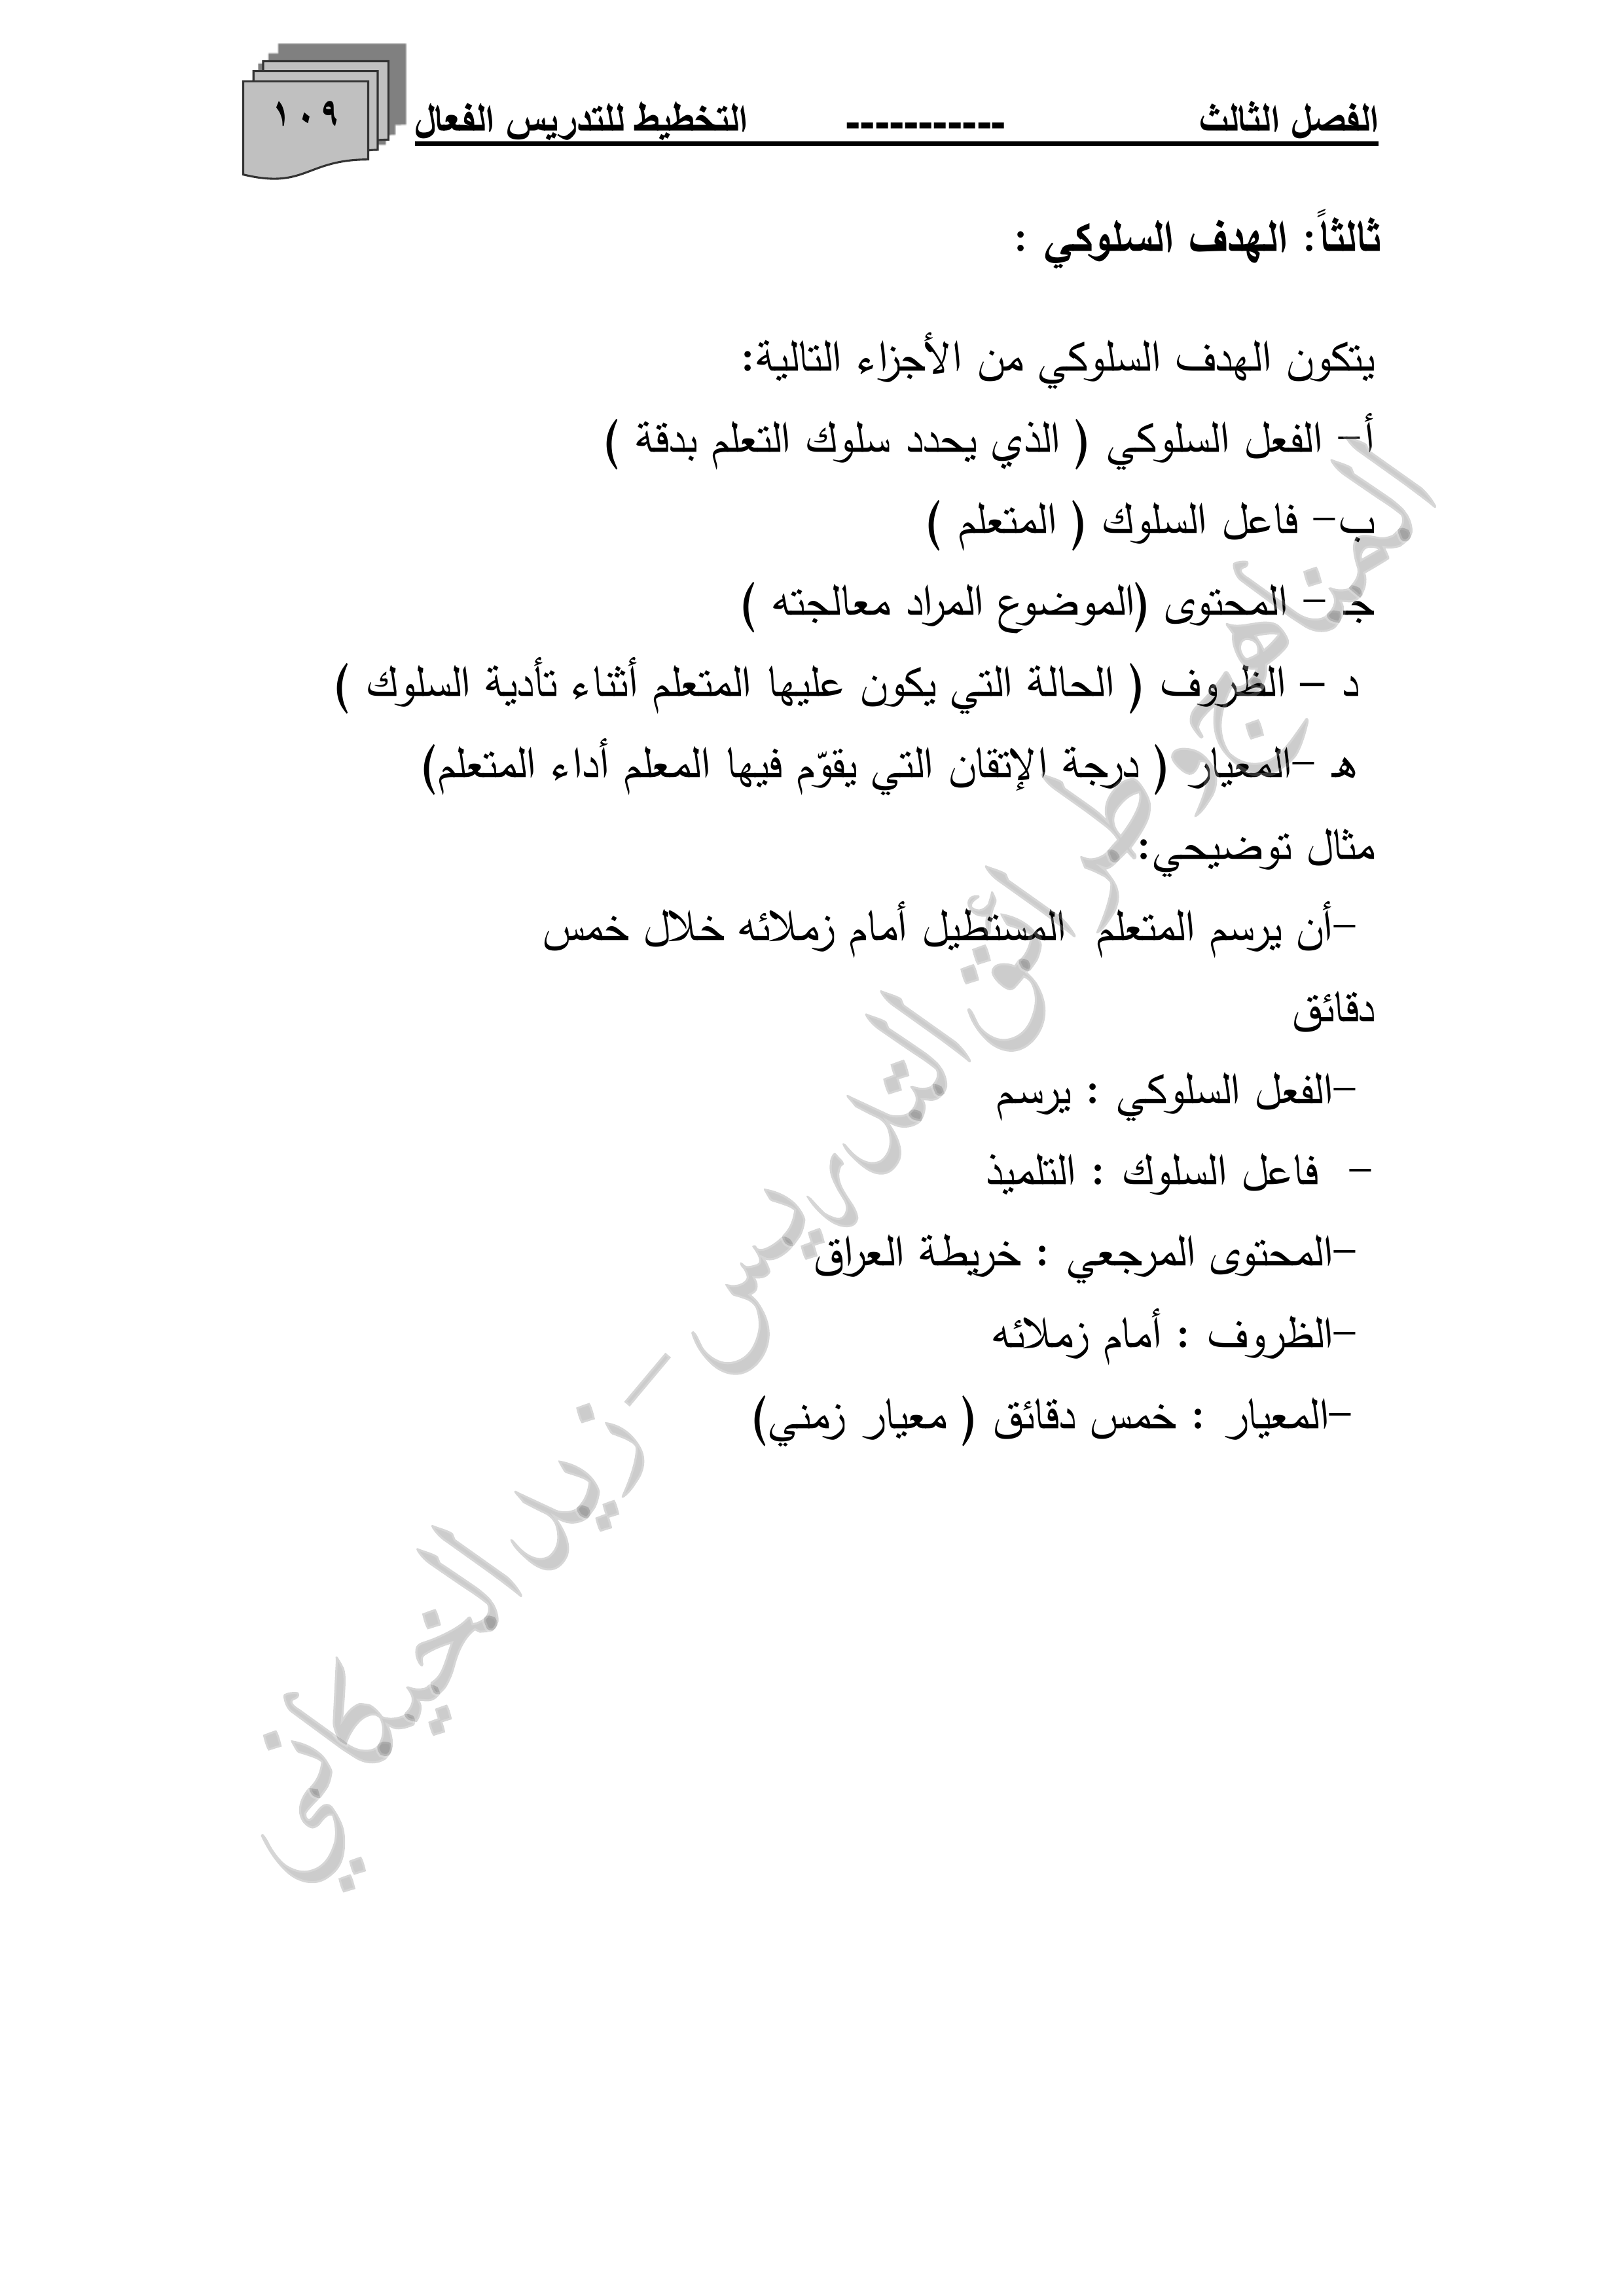 الفصل الثالث ----------- التخطيط للتدريس الفعال ١٠٩
ثالثاً: الهدف السلوكي :
يتكون الهدف السلوكي من الأجزاء التالية:
أ- الفعل السلوكي ( الذي يحدد سلوك التعلم بدقة )
ب- فاعل السلوك ( المتعلم )
جـ - المحتوى (الموضوع المراد معالجته )
د - الظروف ( الحالة التي يكون عليها المتعلم أثناء تأدية السلوك )
هـ -المعيار ( درجة الإتقان التي يقوّم فيها المعلم أداء المتعلم)
مثال توضيحي:
-أن يرسم المتعلم المستطيل أمام زملائه خلال خمس
دقائق
-الفعل السلوكي : يرسم
- فاعل السلوك : التلميذ
-المحتوى المرجعي : خريطة العراق
-الظروف : أمام زملائه
-المعيار : خمس دقائق ( معيار زمني)
المناهج وطرائق التدريس - زيد الخيكاني